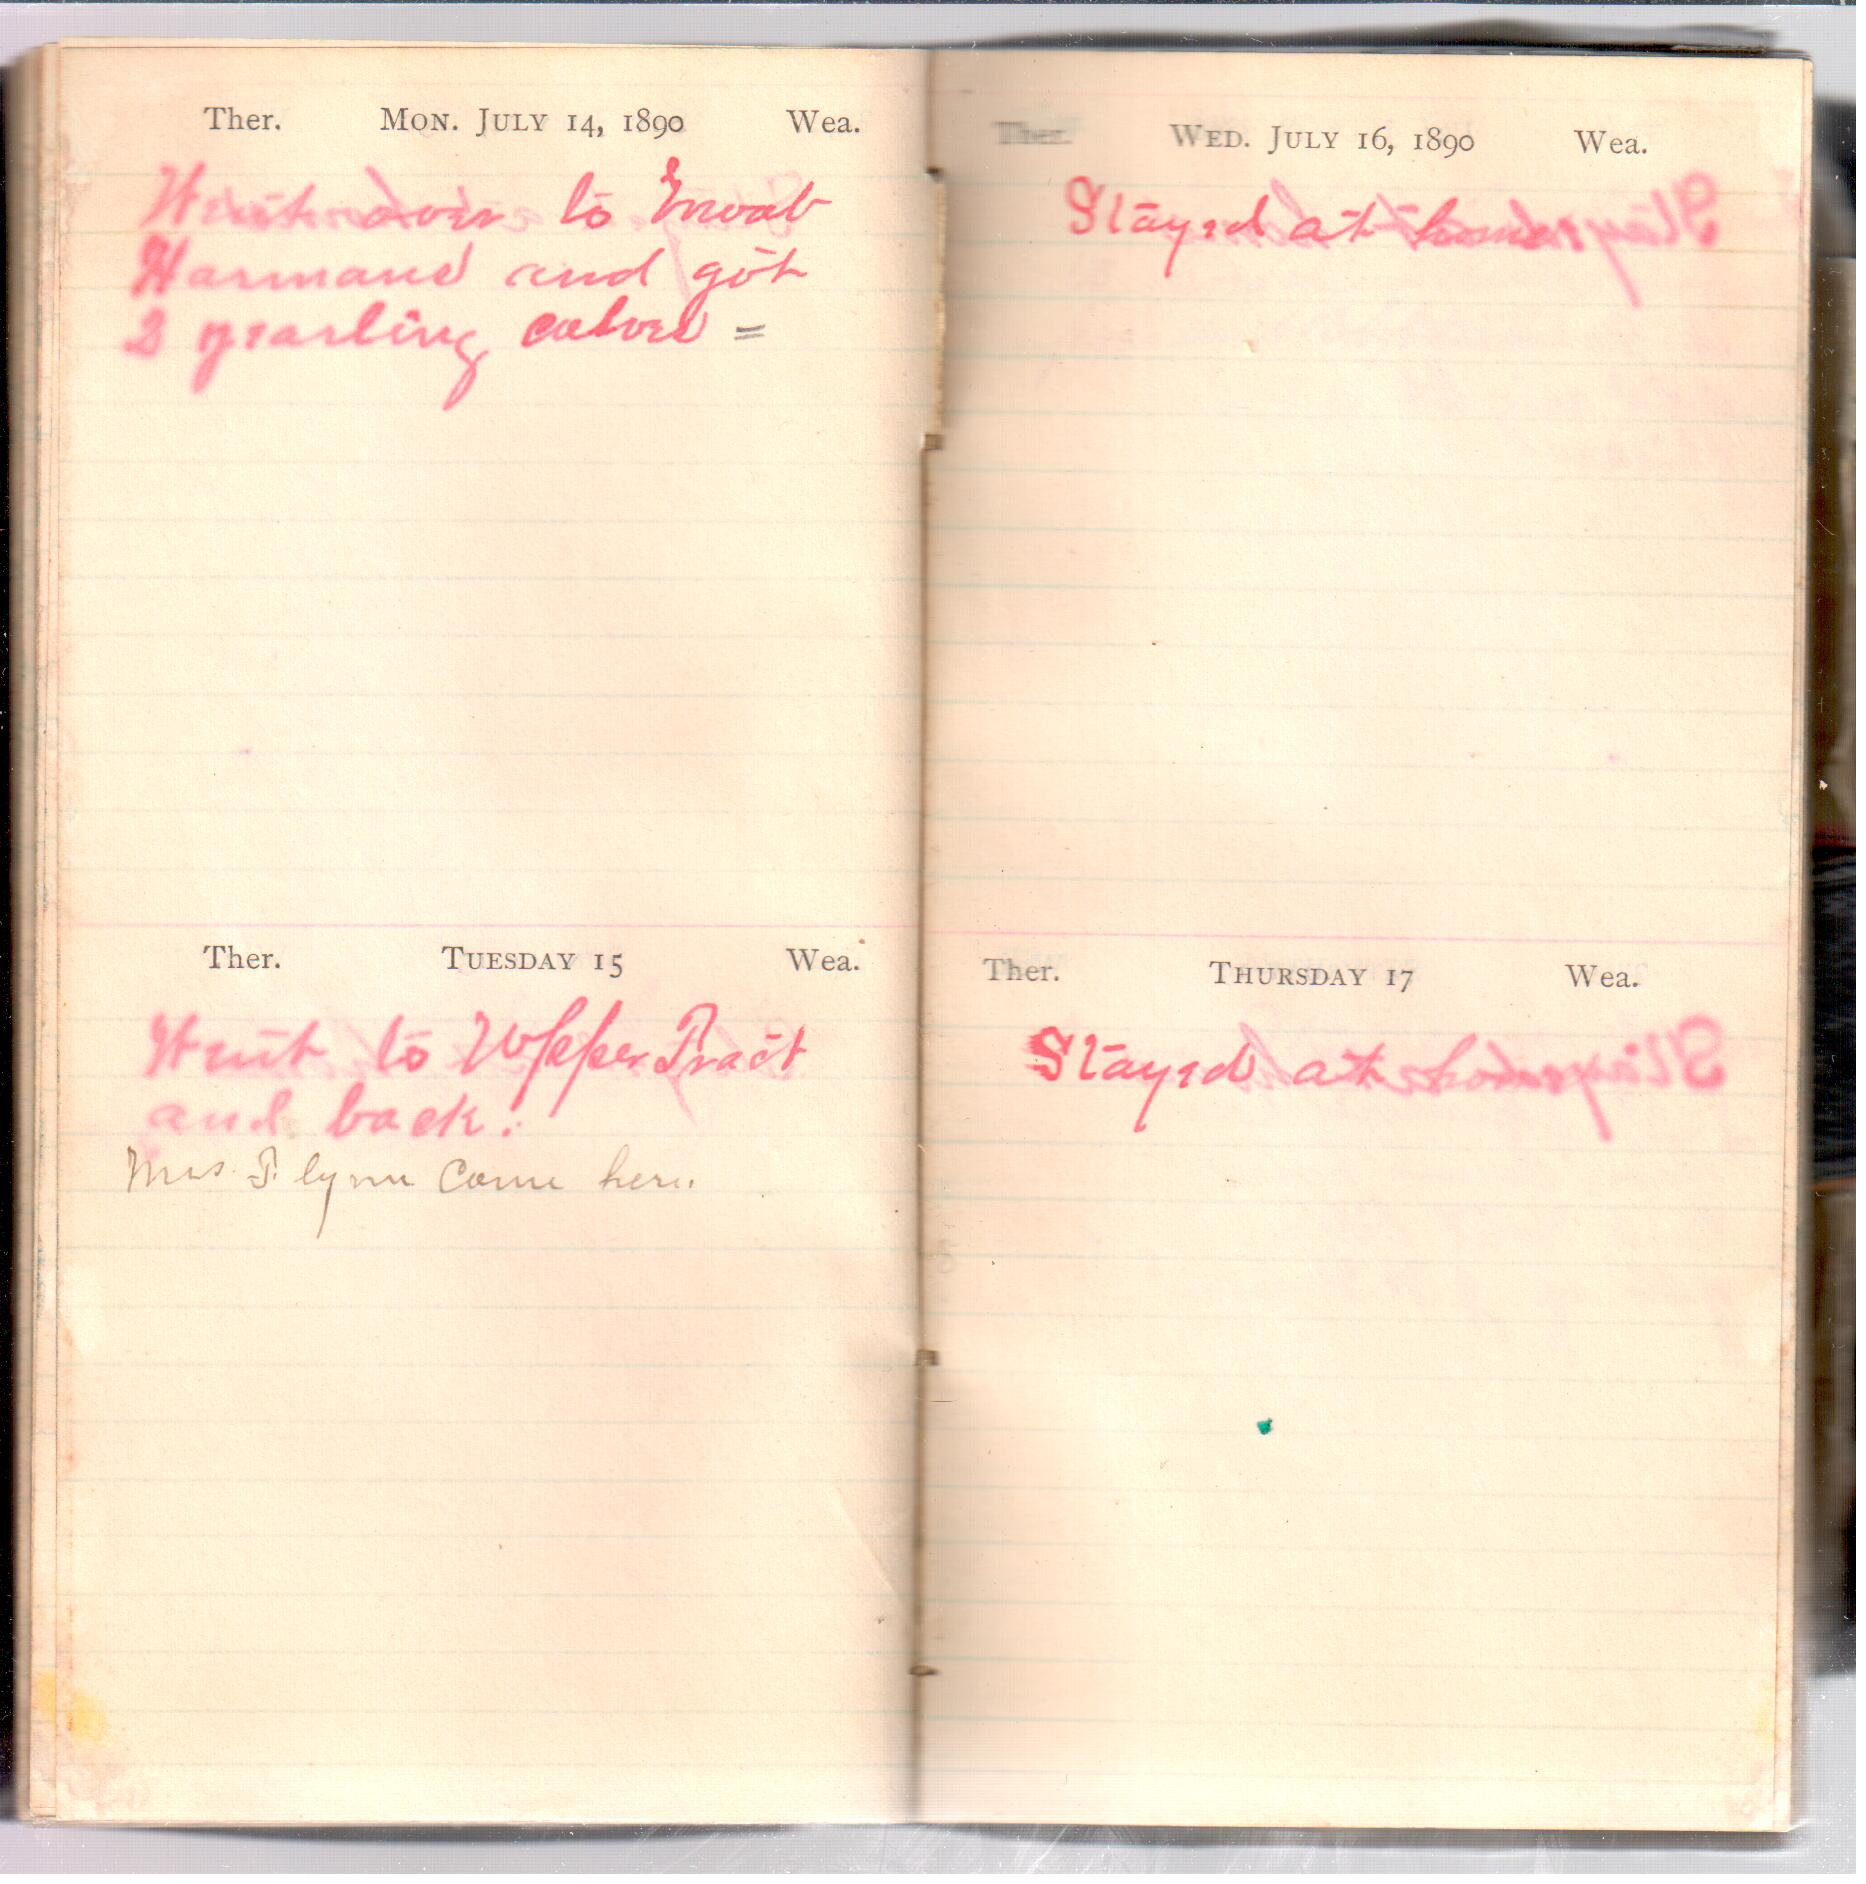 Ther. Mon. July 14, 1890 Wea.
Went over to
Harmans and got
2 yearling calves =
Ther. Tuesday 15 Wea.
Went to Upper Tract
and back.
Mrs. Flynn Came here.
Ther. Wed. July 16, 1890 Wea.
Stayed at home
Ther. Thursday 17 Wea.
Stayed at home